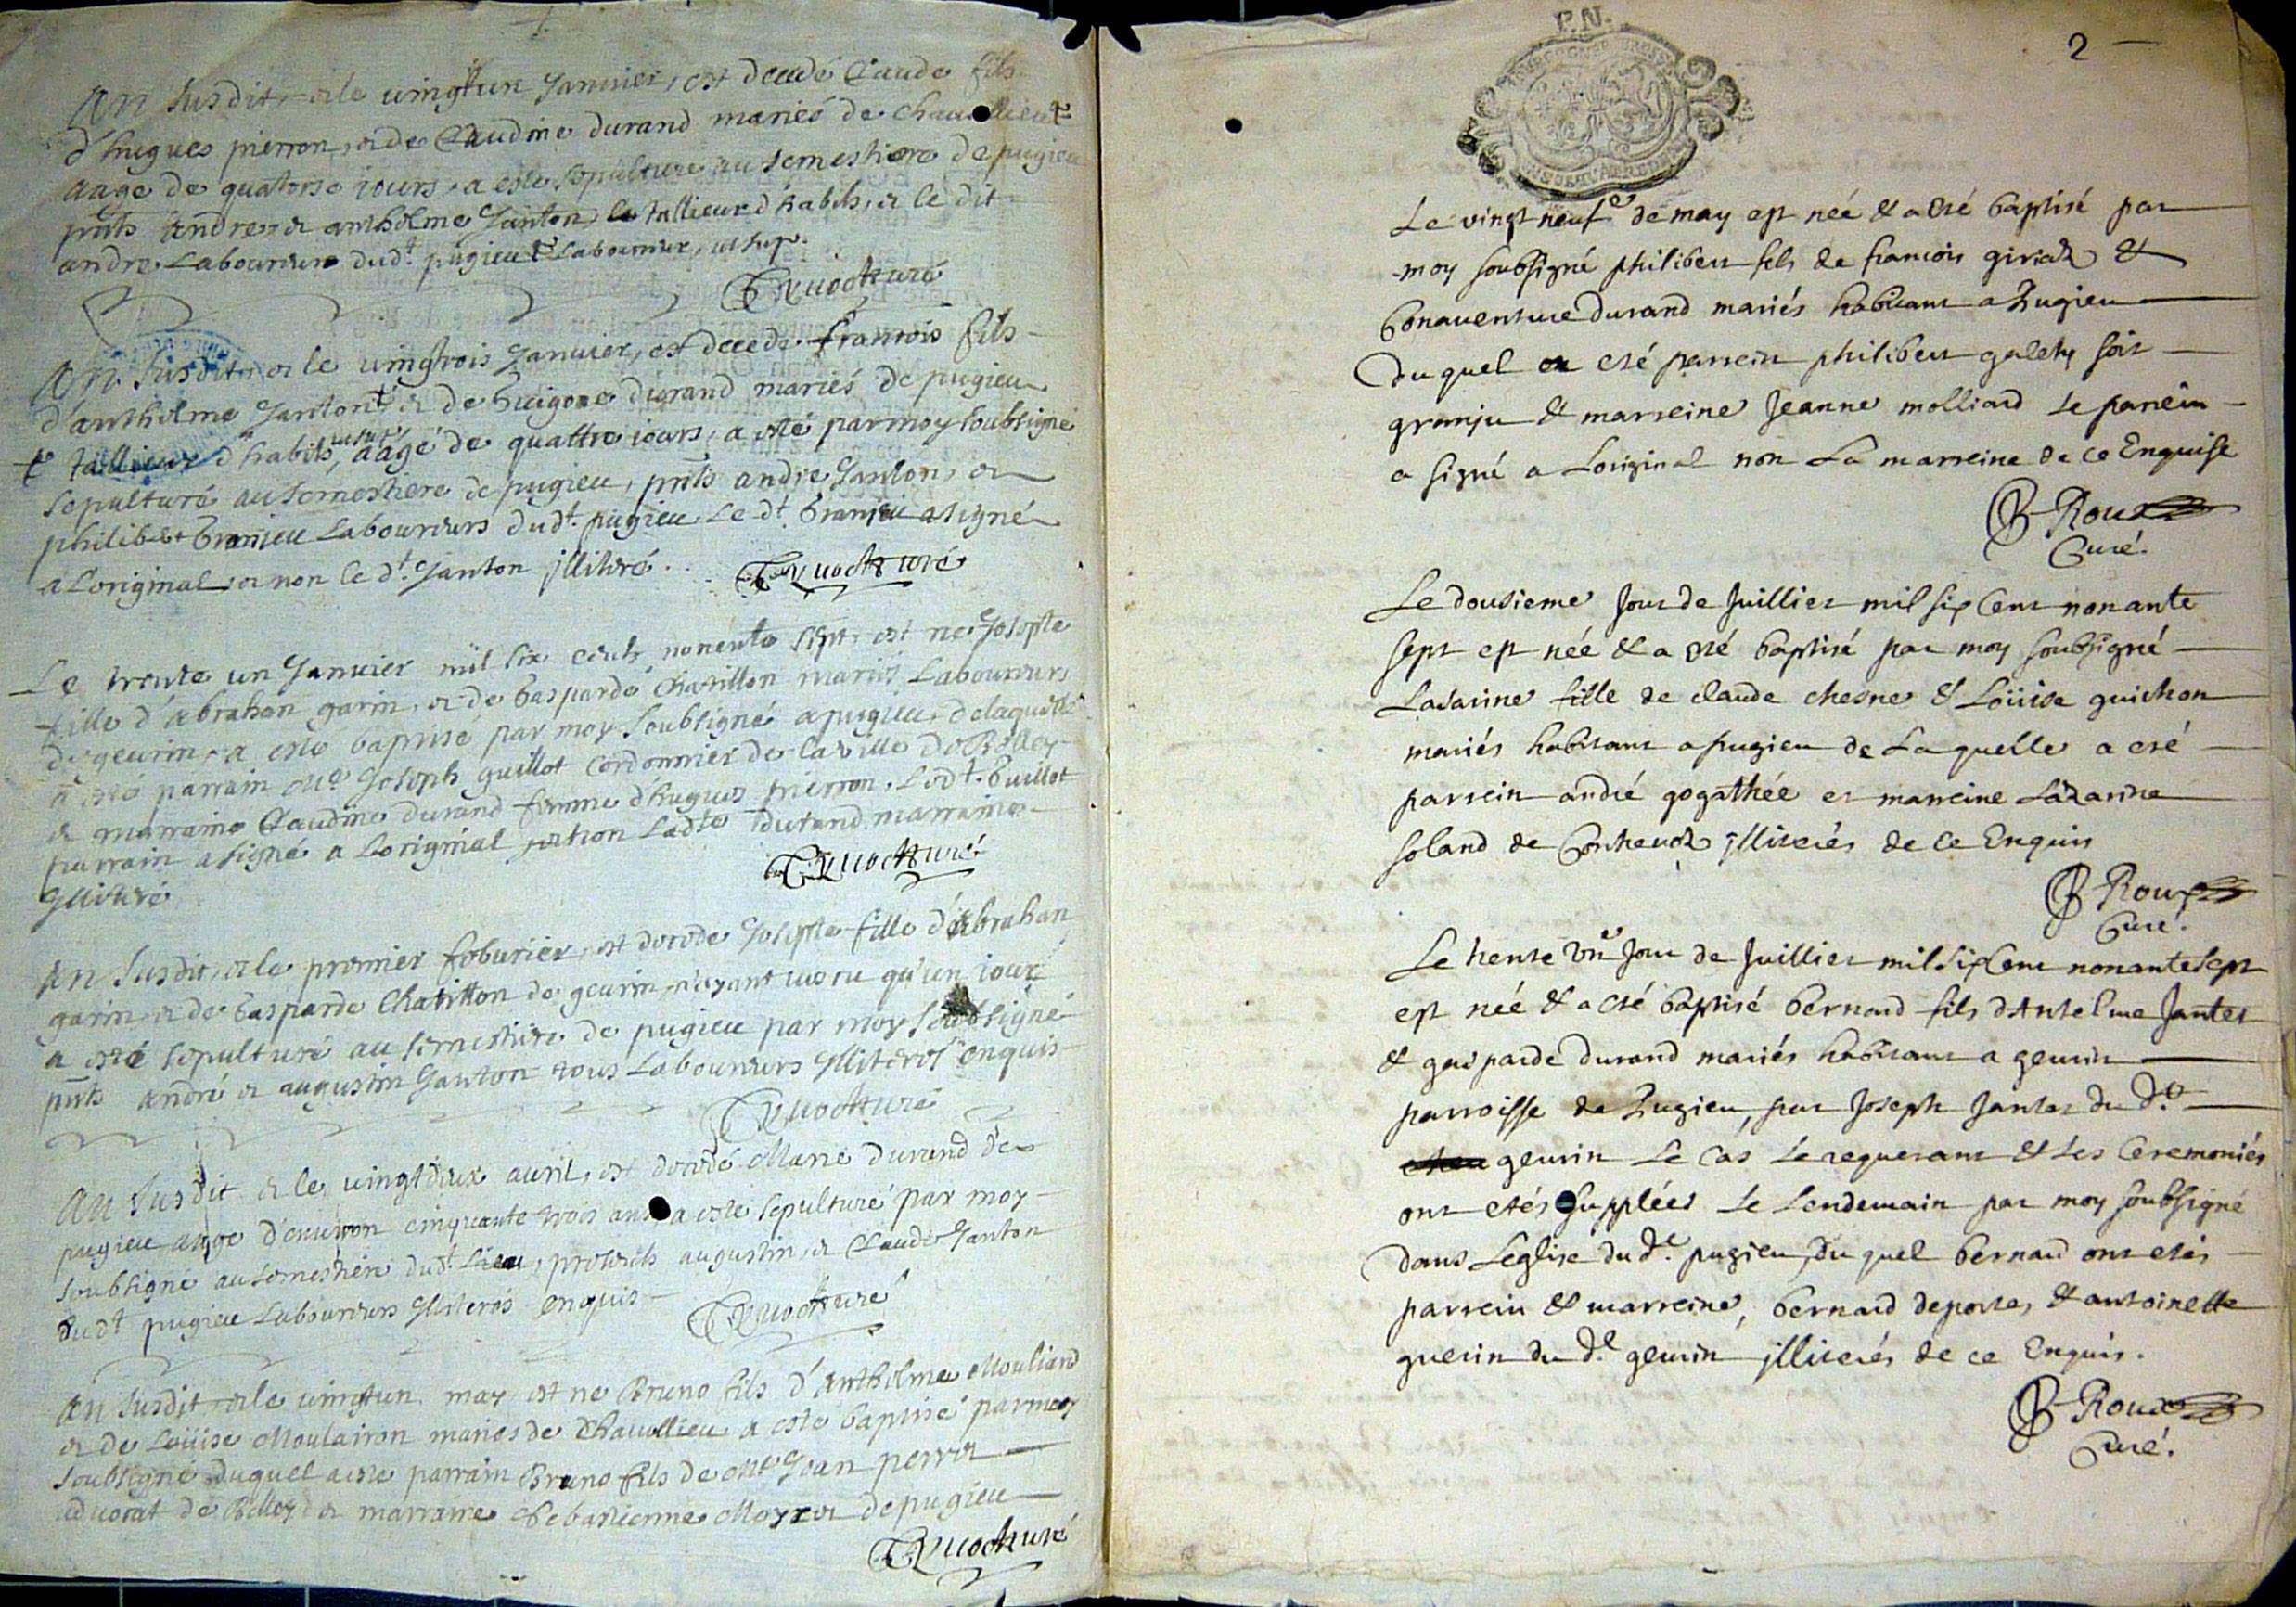 An susdit, et le vingtun Janvier, est decedé Claude fils
d'hugues pierron, et de Claudine durand mariés de chavollieu
aagé de quatorse iours, a esté sepulturé au semestiere de pugieu
pñts andre, et antholme Janton, le tallieur d'habits, et le dit
andre Laboureur dud.t pugieu Laboureur, ut sup.
curé
An susdit et le vingtrois Janvier, est decedé francois fils
d'antholme Janton et de durand mariés de pugieu
tallieur d'habits, ut sup aagé de quattre iours, a esté par moy soubsigné
sepulturé au semestiere de pugieu, pñts andre Janton, et
philibert Granjeu Laboureurs dud.t pugieu Le d.t Granjeu a signé
a Loriginal et non le d.t Janton jllitéré.
curé
Le trente un Janvier mil six cents nonente sept, est né Josepte
fille d'Abrahan garin, et de Gasparde Chatillon mariés Laboureurs
de geurin, a esté baptisé par moy soubsigné a pugieu, de laquelle
a esté parrain Me Joseph guillot cordonnier de la ville de Belley
et marraine Claudine durand femme d'hugues pierron. Led.t Guillot
parrain a signé a Loriginal, et non Ladte durand marraine
Jllitéré
curé
An susdit, et le premier feburier, est decedé Josepte fille d'Abrahan
garin et de Gasparde Chatillon de geurin, n'ayant vescu qu'un iour
a esté sepulturé au semestiere de pugieu par moy soubsigné
pñts andré et augustin Janton tous Laboureurs Jlliterés enquis
curé
An susdit et le vingtdeux auril, est decedé Marie durand de
pugieu aage d'enuiron cinquante trois ans a esté sepulturé par moy
soubsigné au semestiere dud.t Lieu, presents augustin, et Claude Janton
dud.t pugieu Laboureurs Jlliterés enquis
curé
An susdit et le vingtun may est né Bruno fils d'Antholme Mouliard
et de Loüise Moulairon mariés de Chavollieu a esté baptisé par moy
soubsigné duquel a esté parrain Bruno fils de Me Jean perret
advocat de Belley et marraine Sebastienne de pugieu
curé
P.N.
2
Le vingt neufe de may est née & a eté baptisé par
moy soubsigné philibert fils de francois & 
bonaventure durand mariés habitans a Pugieu
du quel a eté parrein philibert galety soit
granju & marreine Jeanne molliard Le parrein
a signé a Loriginal non La marreine de ce Enquise
B Roux
Curé.
Le dousieme Jour de Juillier mil six Cens nonante
sept est née & a eté baptisé par moy soubsigné
Lasarine fille de claude chesne & Loüise guichon
mariés habitans a pugieu de Laquelle a eté
parrein andré gogathée et marreine Lazarine
soland de jlliterés de ce Enquis
B Roux
Curé.
Le trente vne Jour de Juillier mil six Cens nonante sept
est née & a eté baptisé bernard fils d'Antelme Jantet
& gasparde durand mariés habitans a geurin
parroisse de Pugieu, par Joseph Jantet du d.e
geurin Le Cas Le requerant & Les Ceremoniés
ont etés supplées Le Lendemain par moy soubsigné
dans Leglise du d.e pugieu, du quel bernard ont etés
parrein & marreine, bernard deporte, & antoinette
guerin du d.e geurin jlliterés de ce Enquis.
B Roux
Curé.